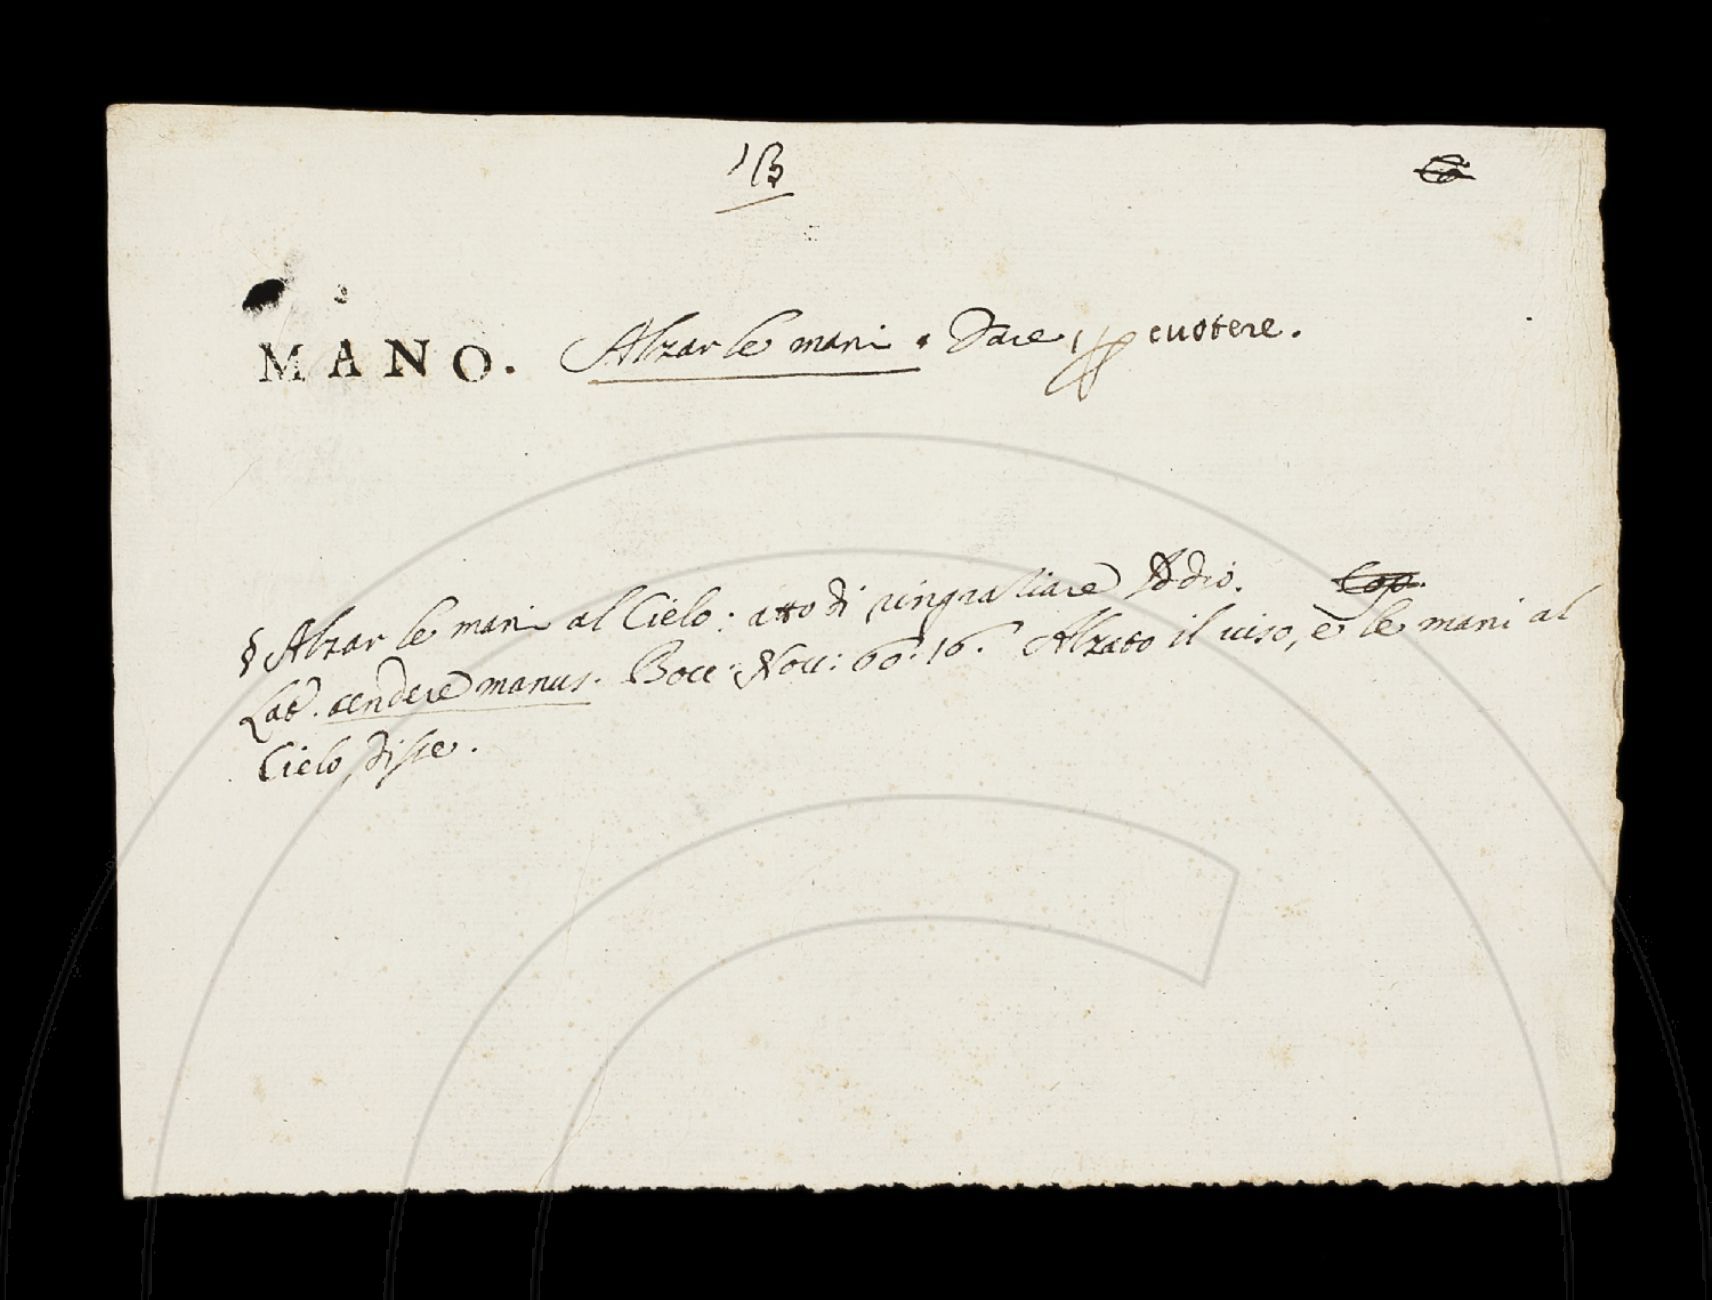 B
MANO. Alzar le mani. Dare, percuotere.
§ Alzar le mani al Cielo: atto di ringratiare Iddio. Cop.
Lat. tendere manus. Bocc: Nou: 60: 16. Alzato il uiso, e le mani al
Cielo, disse.